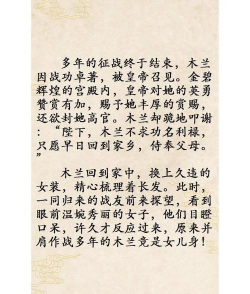 多年的征战终于结束，木兰
因战功卓著，被皇帝召见。金碧
辉煌的宫殿内，皇帝对她的英勇
赞赏有加，赐予她丰厚的赏赐，
还欲封她高官。木兰却跪地叩谢
：“陛下，木兰不求功名利禄，
只愿早日回到家乡，侍奉父母。
”
木兰回到家中，换上久违的
女装，精心梳理着长发。此时，
一同归来的战友前来探望，看到
眼前温婉秀丽的女子，他们目瞪
口呆，许久才反应过来，原来并
肩作战多年的木兰竟是女儿身！